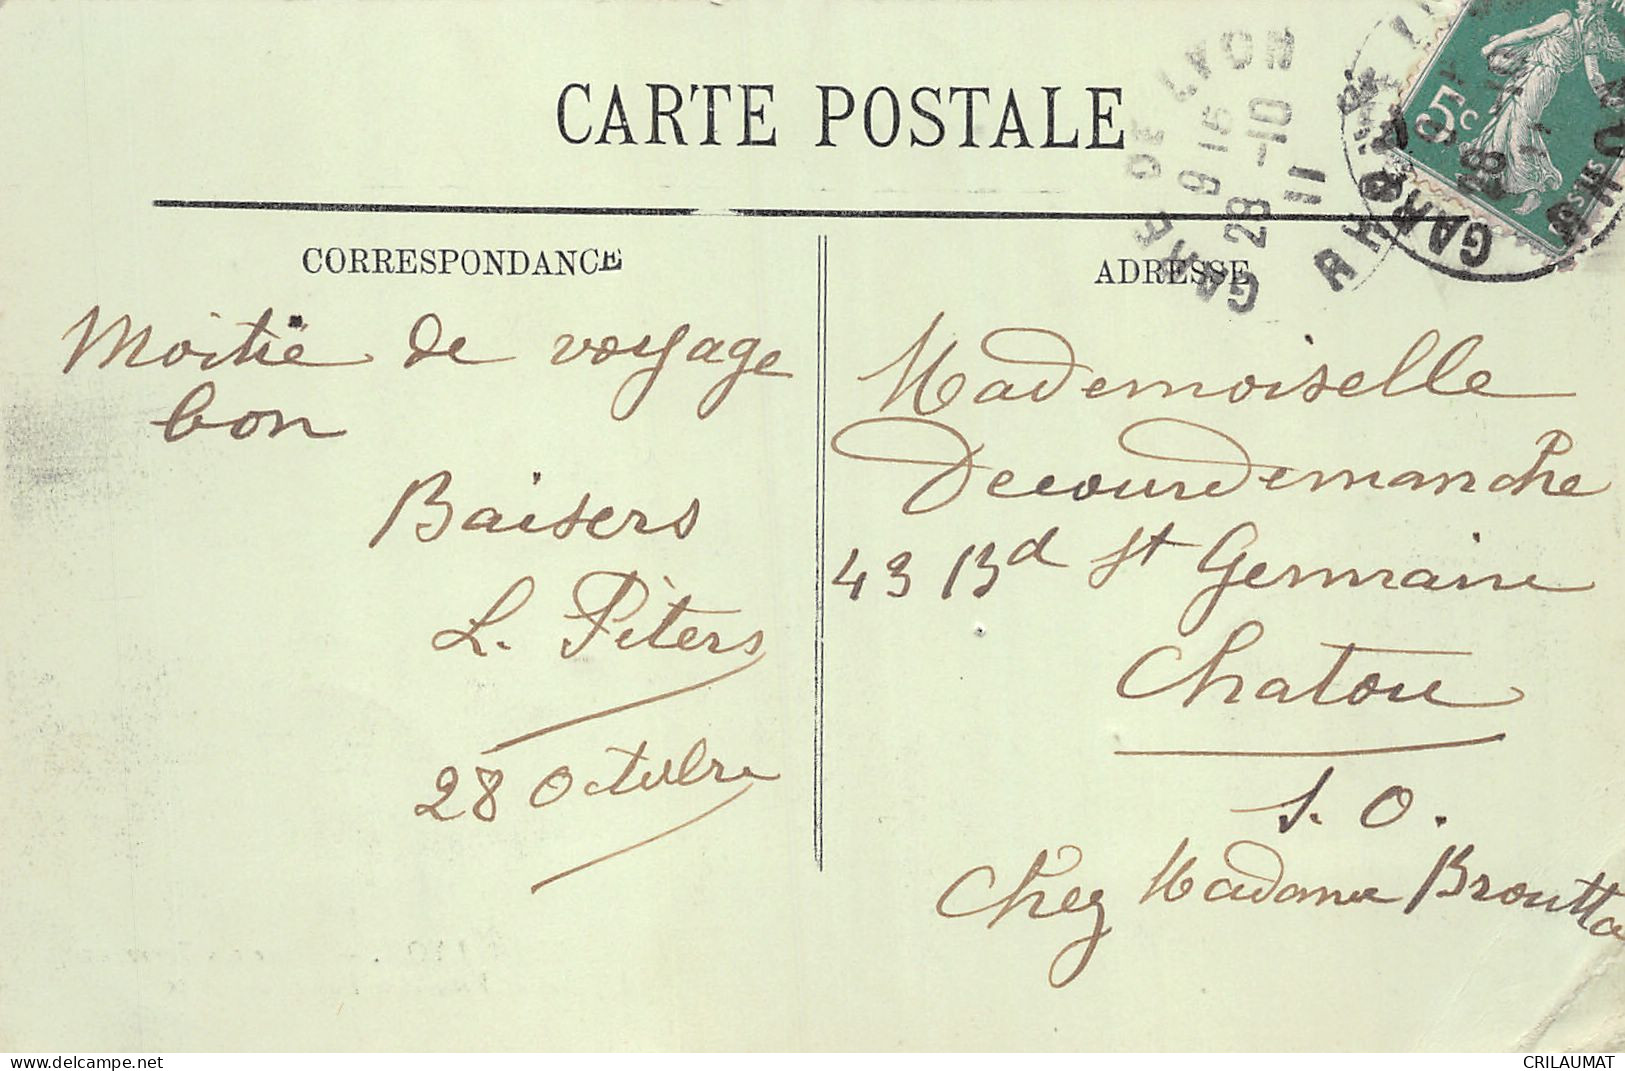 CARTE POSTALE
CORRESPONDANCE
Moitié de voyage
bon
Baisers
L. Piters
28 Octobre
ADRESSE
Mademoiselle
Decourdemanche
43 Bd St Germain
Chatou
S. O.
Chez Madame Broutta
GARE DE LYON
9 15
28 -10
11
GARE DE LYON
RHONE
5c
www.delcampe.net
CRILAUMAT